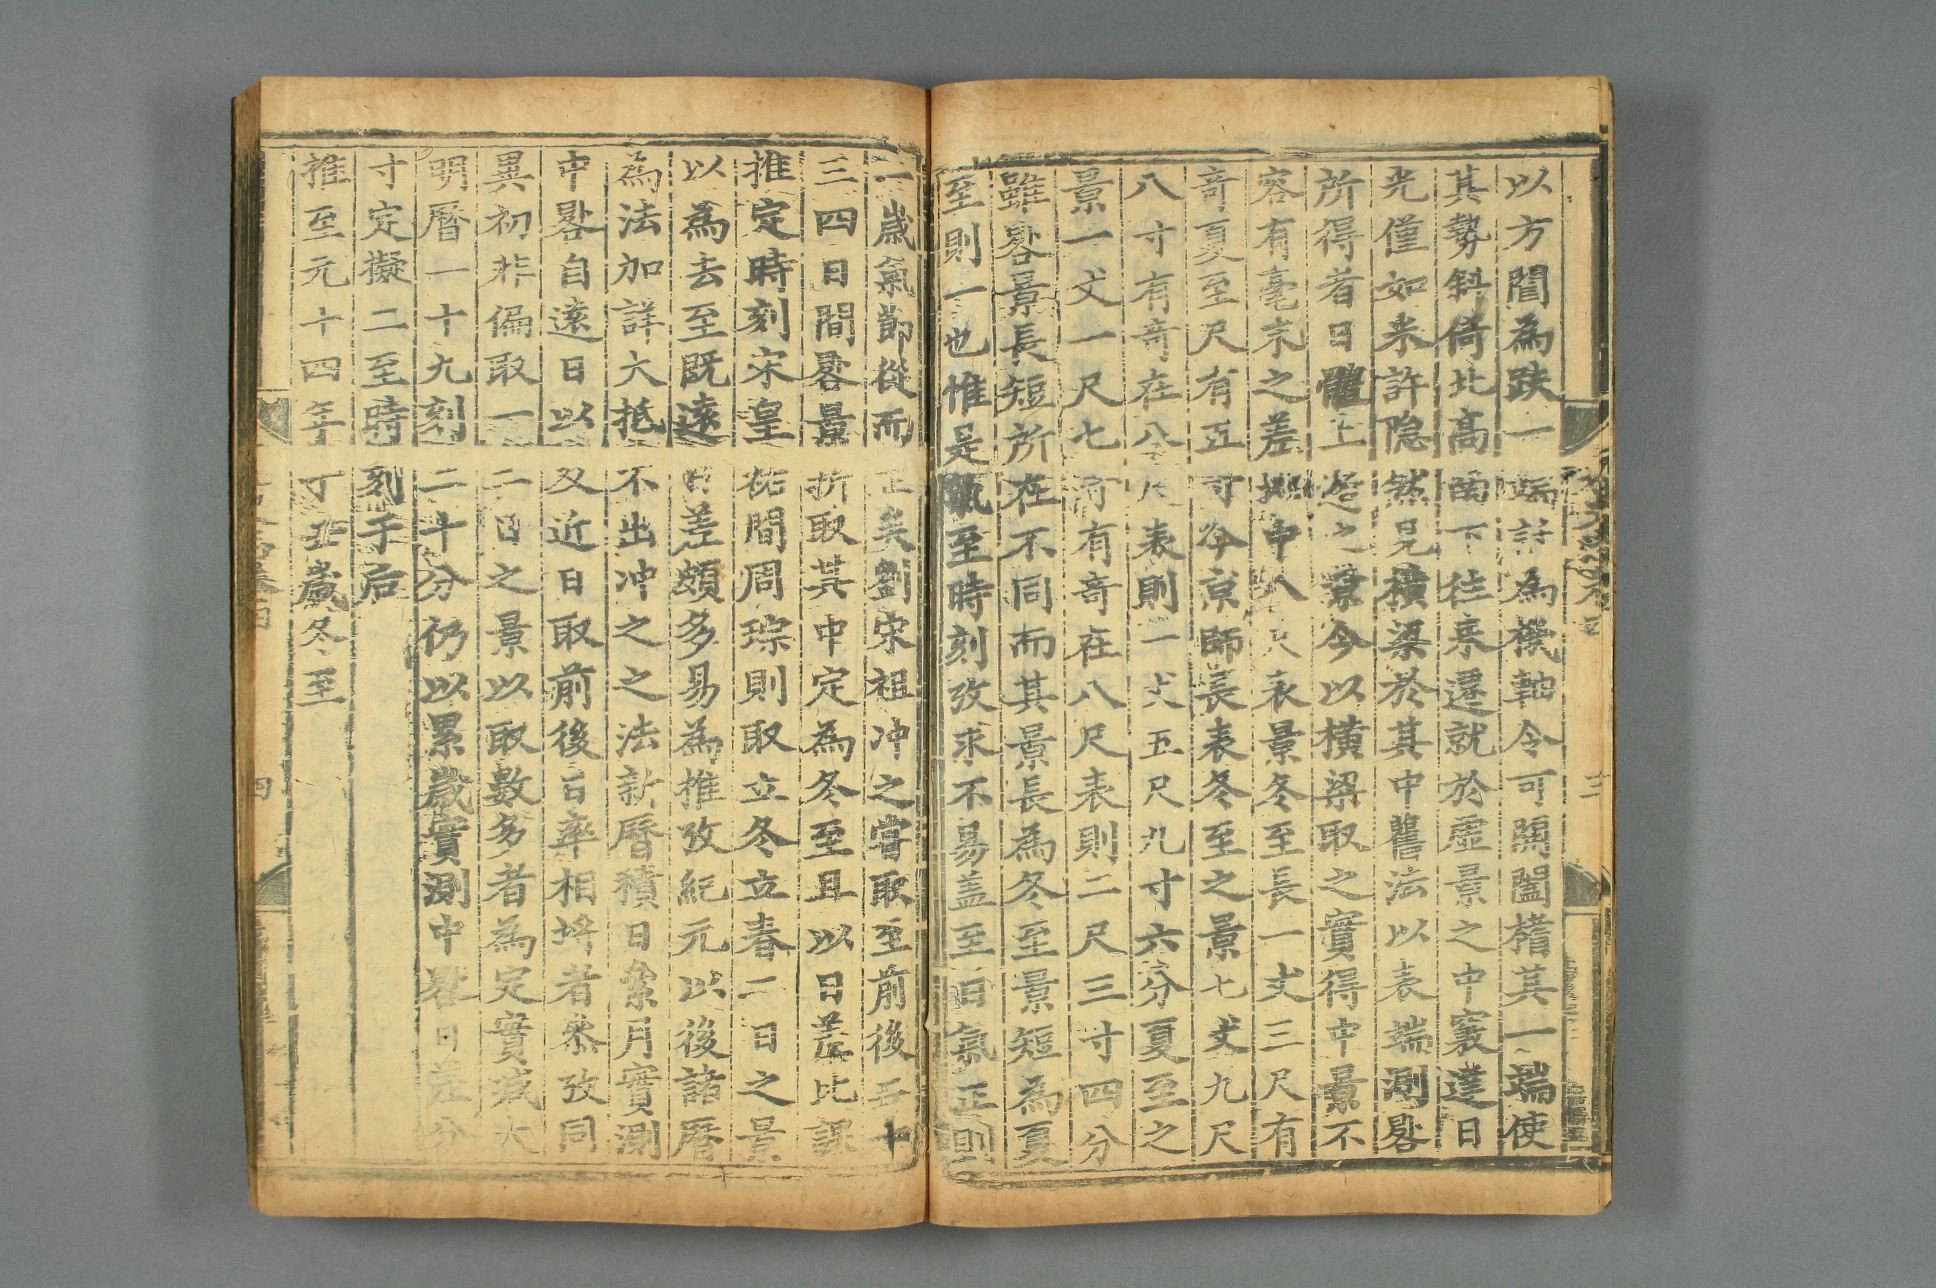 以方䦱為趺一端設為機軸令可開闔榰其一端使
其勢斜倚北高南下往来遷就於虛景之中竅達日
光僅如米許隐然見橫梁於其中舊法以表端測晷
所得者日體上邊之景今以橫梁取之實得中景不
容有毫末之差地中八尺表景冬至長一丈三尺有
奇夏至尺有五寸今京師長表冬至之景七丈九尺
八寸有奇在八尺表則一丈五尺九寸六分夏至之
景一丈一尺七寸有奇在八尺表則二尺三寸四分
雖晷景長短所在不同而其景長為冬至景短為夏
至則一也惟是氣至時刻攷求不易盖至日氣正則
一歲氣節從而正矣劉宋祖冲之嘗取至前後二十
三四日間晷景折取其中定為冬至且以日差比課
推定時刻宋皇祐間周琮則取立冬立春二日之景
以為去至既遠日差頗多易為推攷紀元以後諸曆
為法加詳大抵不出冲之之法新曆積日累月實測
中晷自遠日以及近日取前後日率相埒者叅攷同
異初非偏取一二日之景以取數多者為定實减大
明曆一十九刻二十分仍以累歲實測中晷日差分
寸定擬二至時刻于后
推至元十四年丁丑歲冬至